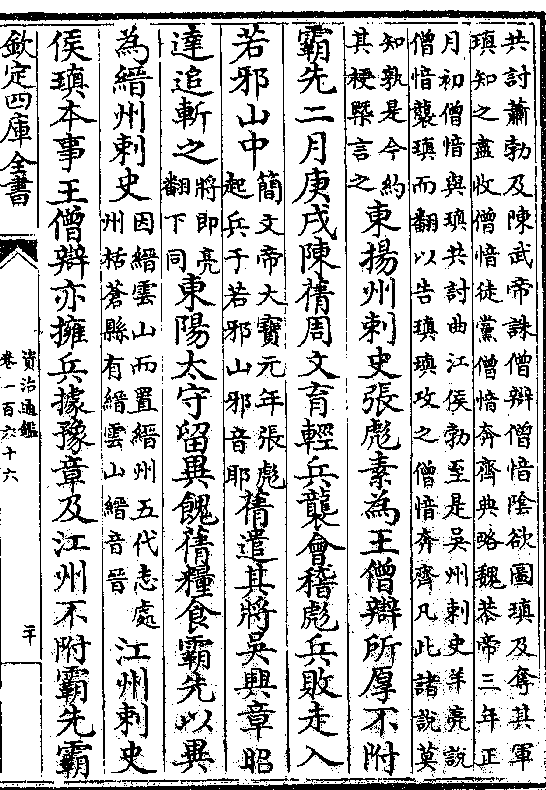 共討蕭勃及陳武帝誅僧辯僧愔陰欲圖瑱及奪其軍
瑱知之盡收僧愔徒黨僧愔奔齊典略魏恭帝三年正
月初僧愔與瑱共討曲江侯勃至是吳州刺史羊亮說
僧愔襲瑱而翻以告瑱瑱攻之僧愔奔齊凡此諸說莫
知孰是今約其梗槩言之東揚州刺史張彪素為王僧辯所厚不附
霸先二月庚戌陳蒨周文育輕兵襲會稽彪兵敗走入
若邪山中簡文帝大寶元年張彪起兵于若邪山邪音耶蒨遣其將吳興章昭
達追斬之將即亮翻下同東陽太守留異餽蒨糧食霸先以異
為縉州刺史因縉雲山而置縉州五代志處州枯蒼縣有縉雲山縉音晉江州刺史
侯瑱本事王僧辯亦擁兵據豫章及江州不附霸先霸
欽定四庫全書
資治通鑑
卷一百六十六
二十